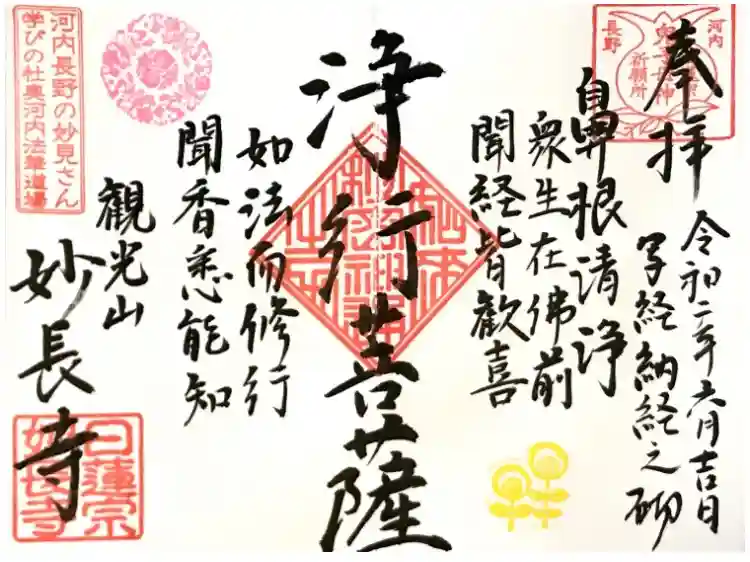 奉拝
令和二年六月吉日
写経納経之砌
河内
長野
祈願所
鼻根清浄
衆生在佛前
聞経皆歓喜
浄行菩薩
如法而修行
聞香悉能知
観光山
妙長寺
河内長野の妙見さん
学びの杜奥河内法華道場
日蓮宗
妙長寺